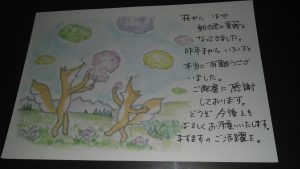 桜から、はや
新緑の季節と
なってきました。
昨年まから いろいろと
本当に有難うござ
いました。
ご配慮に感謝
しております。
どうぞ今後とも
よろしくお願いいたします。
ますますのご活躍を。